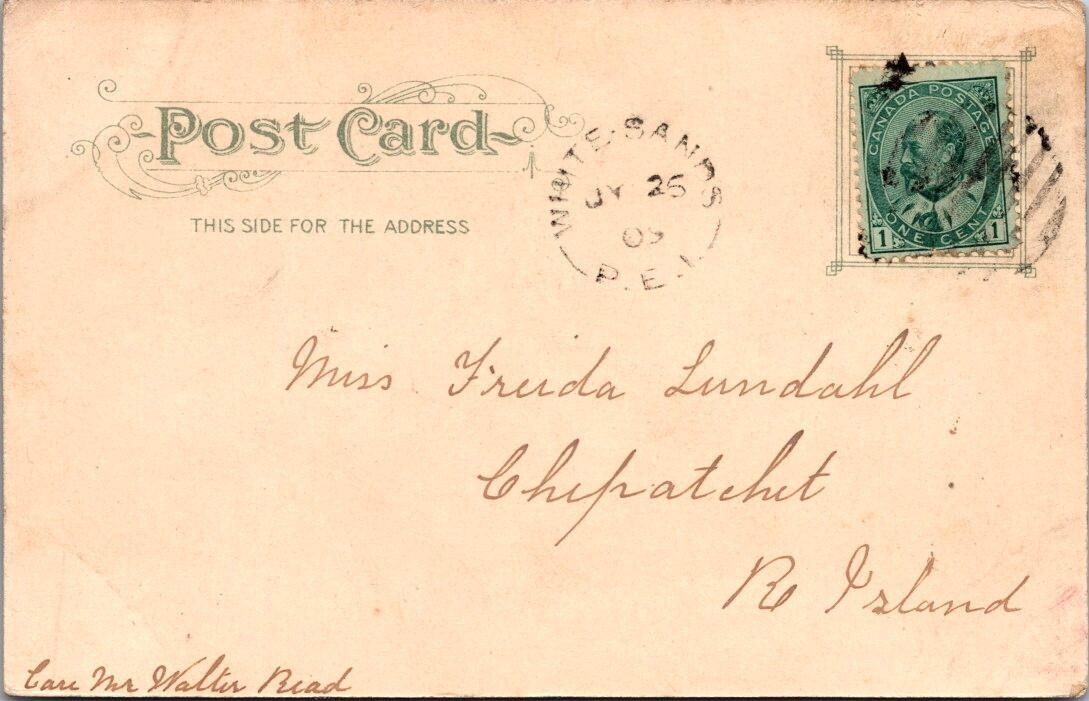 Post Card
THIS SIDE FOR THE ADDRESS
WHITE SANDS
JY 26
P.E.I.
CANADA POSTAGE
1 ONE CENT 1
Miss Freida Lundahl
Chepatchet
R Island
Care Mr Walter Read